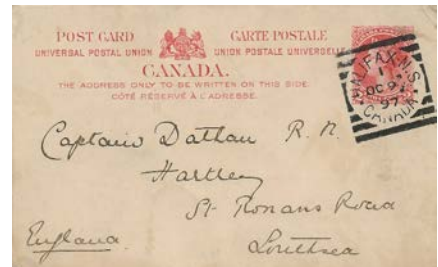 POST CARD CARTE POSTALE
UNIVERSAL POSTAL UNION UNION POSTALE UNIVERSELLE
CANADA.
THE ADDRESS ONLY TO BE WRITTEN ON THIS SIDE.
CÔTÉ RÉSERVÉ À L'ADRESSE.
HALIFAX. N.S.
1
OC 9
97
CANADA
Captain Dathan R. N.
Hartley
St. Ronans Road
Southsea
England.